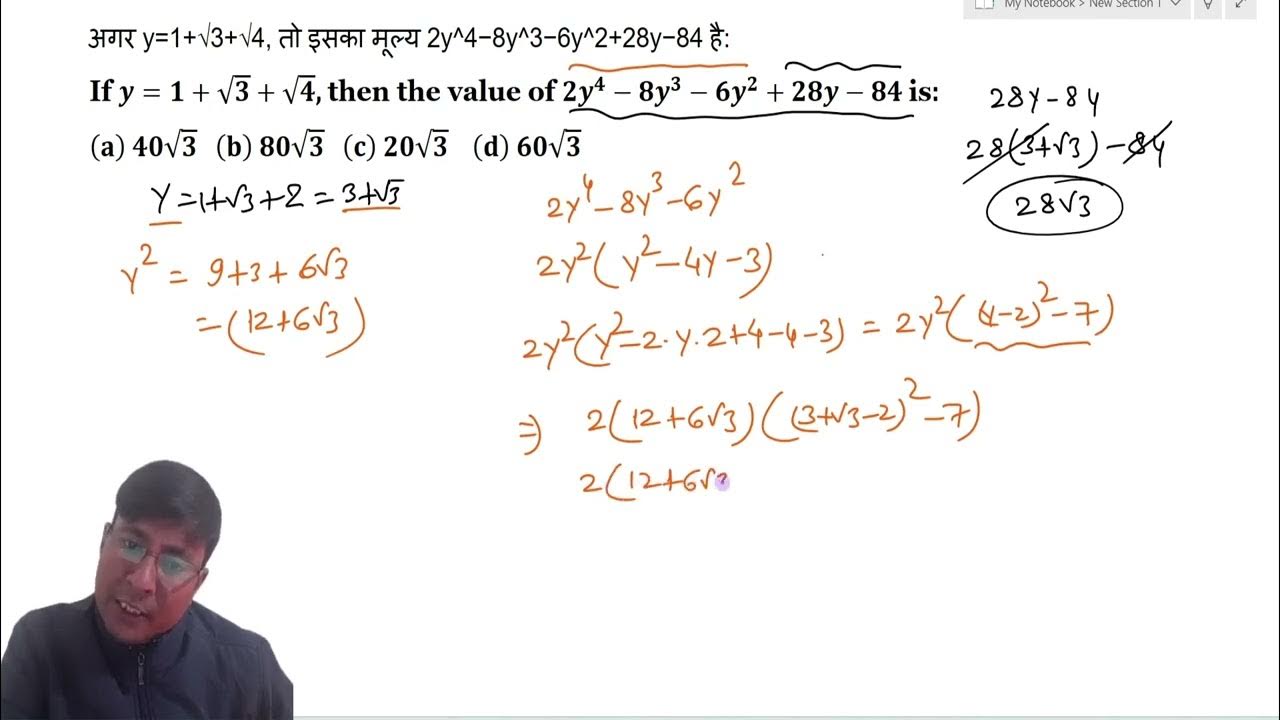 My Notebook > New Section 1
अगर y=1+√3+√4, तो इसका मूल्य 2y^4−8y^3−6y^2+28y−84 है:
If y = 1 + √3 + √4, then the value of 2y⁴ − 8y³ − 6y² + 28y − 84 is:
(a) 40√3 (b) 80√3 (c) 20√3 (d) 60√3
Y = 1+√3+2 = 3+√3
y² = 9+3+6√3
= (12+6√3)
2y⁴ − 8y³ − 6y²
2y²(y² − 4y − 3)
2y²(y² − 2·y·2 + 4 − 4 − 3) = 2y²((y−2)² − 7)
⇒ 2(12+6√3)((3+√3−2)² − 7)
2(12+6√3
28y − 84
28(3+√3) − 84
28√3